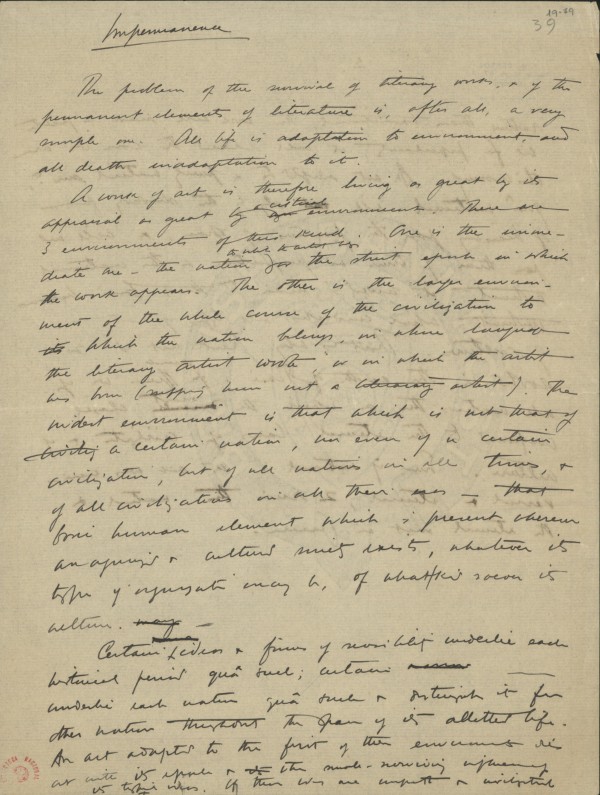 19-89
39
Impermanence
The problem of the survival of literary works, & of the
permanent elements of literature is, after all, a very
simple one. All life is adaptation to environment, and
all death inadaptation to it.
A work of art is therefore living or great by its
appraisal as great by a critical environment. There are
3 environments of this kind. One is the imme-
diate one – the nation for the strict epoch in which
the work appears. The other is the larger environ-
ment of the whole course of the civilization to
which the nation belongs, in whose language
the literary artist wrote, or in which the artist
was born (supposing him not a literary artist). The
widest environment is that which is not that of
a certain nation, nor even of a certain
civilization, but of all nations in all times, &
of all civilizations in all their –
human element which is present wherever
an organized & cultured society exists, whatever its
type of organisation may be, of what kind soever its
culture.
Certain ideas & forms of sensibility underlie each
historical period quâ such; certain
underlie each nation quâ such & distinguish it from
other nations throughout the span of its allotted life.
An art adapted to the first of these environments dies
out with its epoch &